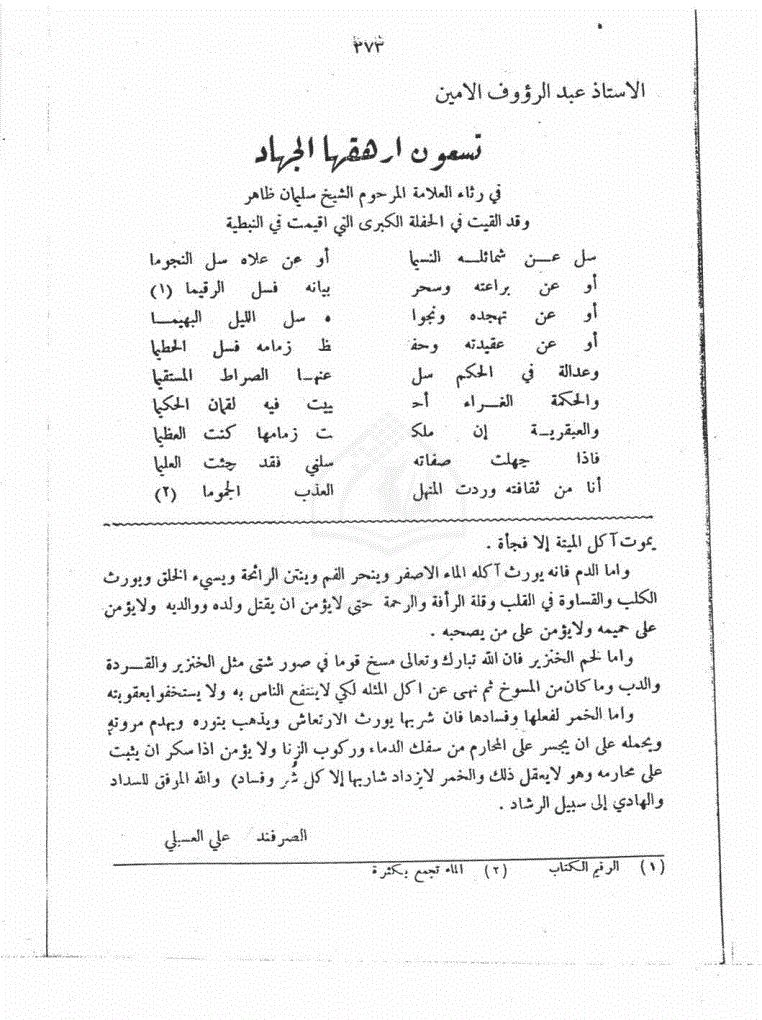 ٣٧٣
الاستاذ عبد الرؤوف الامين
تسعون ارهقها الجهاد
في رثاء العلامة المرحوم الشيخ سليمان ظاهر
وقد القيت في الحفلة الكبرى التي اقيمت في النبطية
سل عــن شمائلـه النسيما أو عن علاه سل النجوما
أو عن براعته وسحر بيانه فسل الرقيما (١)
أو عن تهجده ونجوا ه سل الليل البهيمــا
أو عن عقيدته وحفـ ظ زمامه فسل الحطيما
وعدالة في الحكم سل عنهـا الصراط المستقيما
والحكمة الغـراء أحـ ييت فيه لقمان الحكيما
والعبقريـة إن ملكـ ت زمامها كنت العظيما
فاذا جهلت صفاته سلني فقد جئت العليما
أنا من ثقافته وردت المنهل العذب الجموما (٢)
يموت آكل الميتة إلا فجأة .
واما الدم فانه يورث آكله الماء الاصفر وينحر الفم وينتن الرائحة ويسيء الخلق ويورث
الكلب والقساوة في القلب وقلة الرأفة والرحمة حتى لايؤمن ان يقتل ولده ووالديه ولايؤمن
على حميمه ولايؤمن على من يصحبه .
واما لحم الخنزير فان الله تبارك وتعالى مسخ قوما في صور شتى مثل الخنزير والقـردة
والدب وما كان من المسوخ ثم نهى عن اكل المثله لكي لاينتفع الناس به ولا يستخفوا بعقوبته
واما الخمر لفعلها وفسادها فان شربها يورث الارتعاش ويذهب بنوره ويهدم مروته
ويحمله على ان يجسر على المحارم من سفك الدماء وركوب الزنا ولا يؤمن اذا سكر ان يثبت
على محارمه وهو لايعقل ذلك والخمر لايزداد شاربها إلا كل شُر وفساد) والله المرفق للسداد
والهادي إلى سبيل الرشاد .
الصرفند علي العسيلي
(١) الرقيم الكتاب (٢) الماء تجمع بكثرة